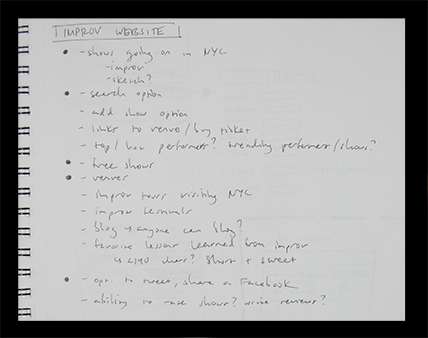 IMPROV WEBSITE
- shows going on in NYC
- improv
- sketch?
- search option
- add show option
- links to venue/buy ticket
- top/ performers? trending performers/shows?
- free shows
- venues
- improv tours visiting NYC
- improv festivals
- blog → anyone can blog?
- favorite lesson learned from improv
↳ <140 chars? Short + sweet
- opt. to tweet, share on Facebook
- ability to rate shows? write reviews?